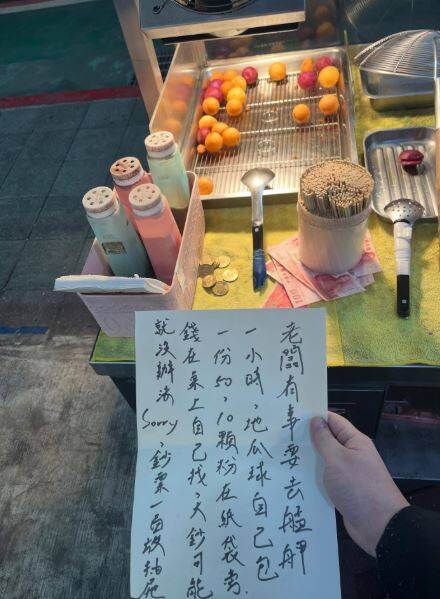 老闆有事要去艋舺
一小時，地瓜球自己包
一份50，10顆粉在紙袋旁.
錢在桌上自己找，大鈔可能
就沒辦法 Sorry，鈔票一百放抽屜